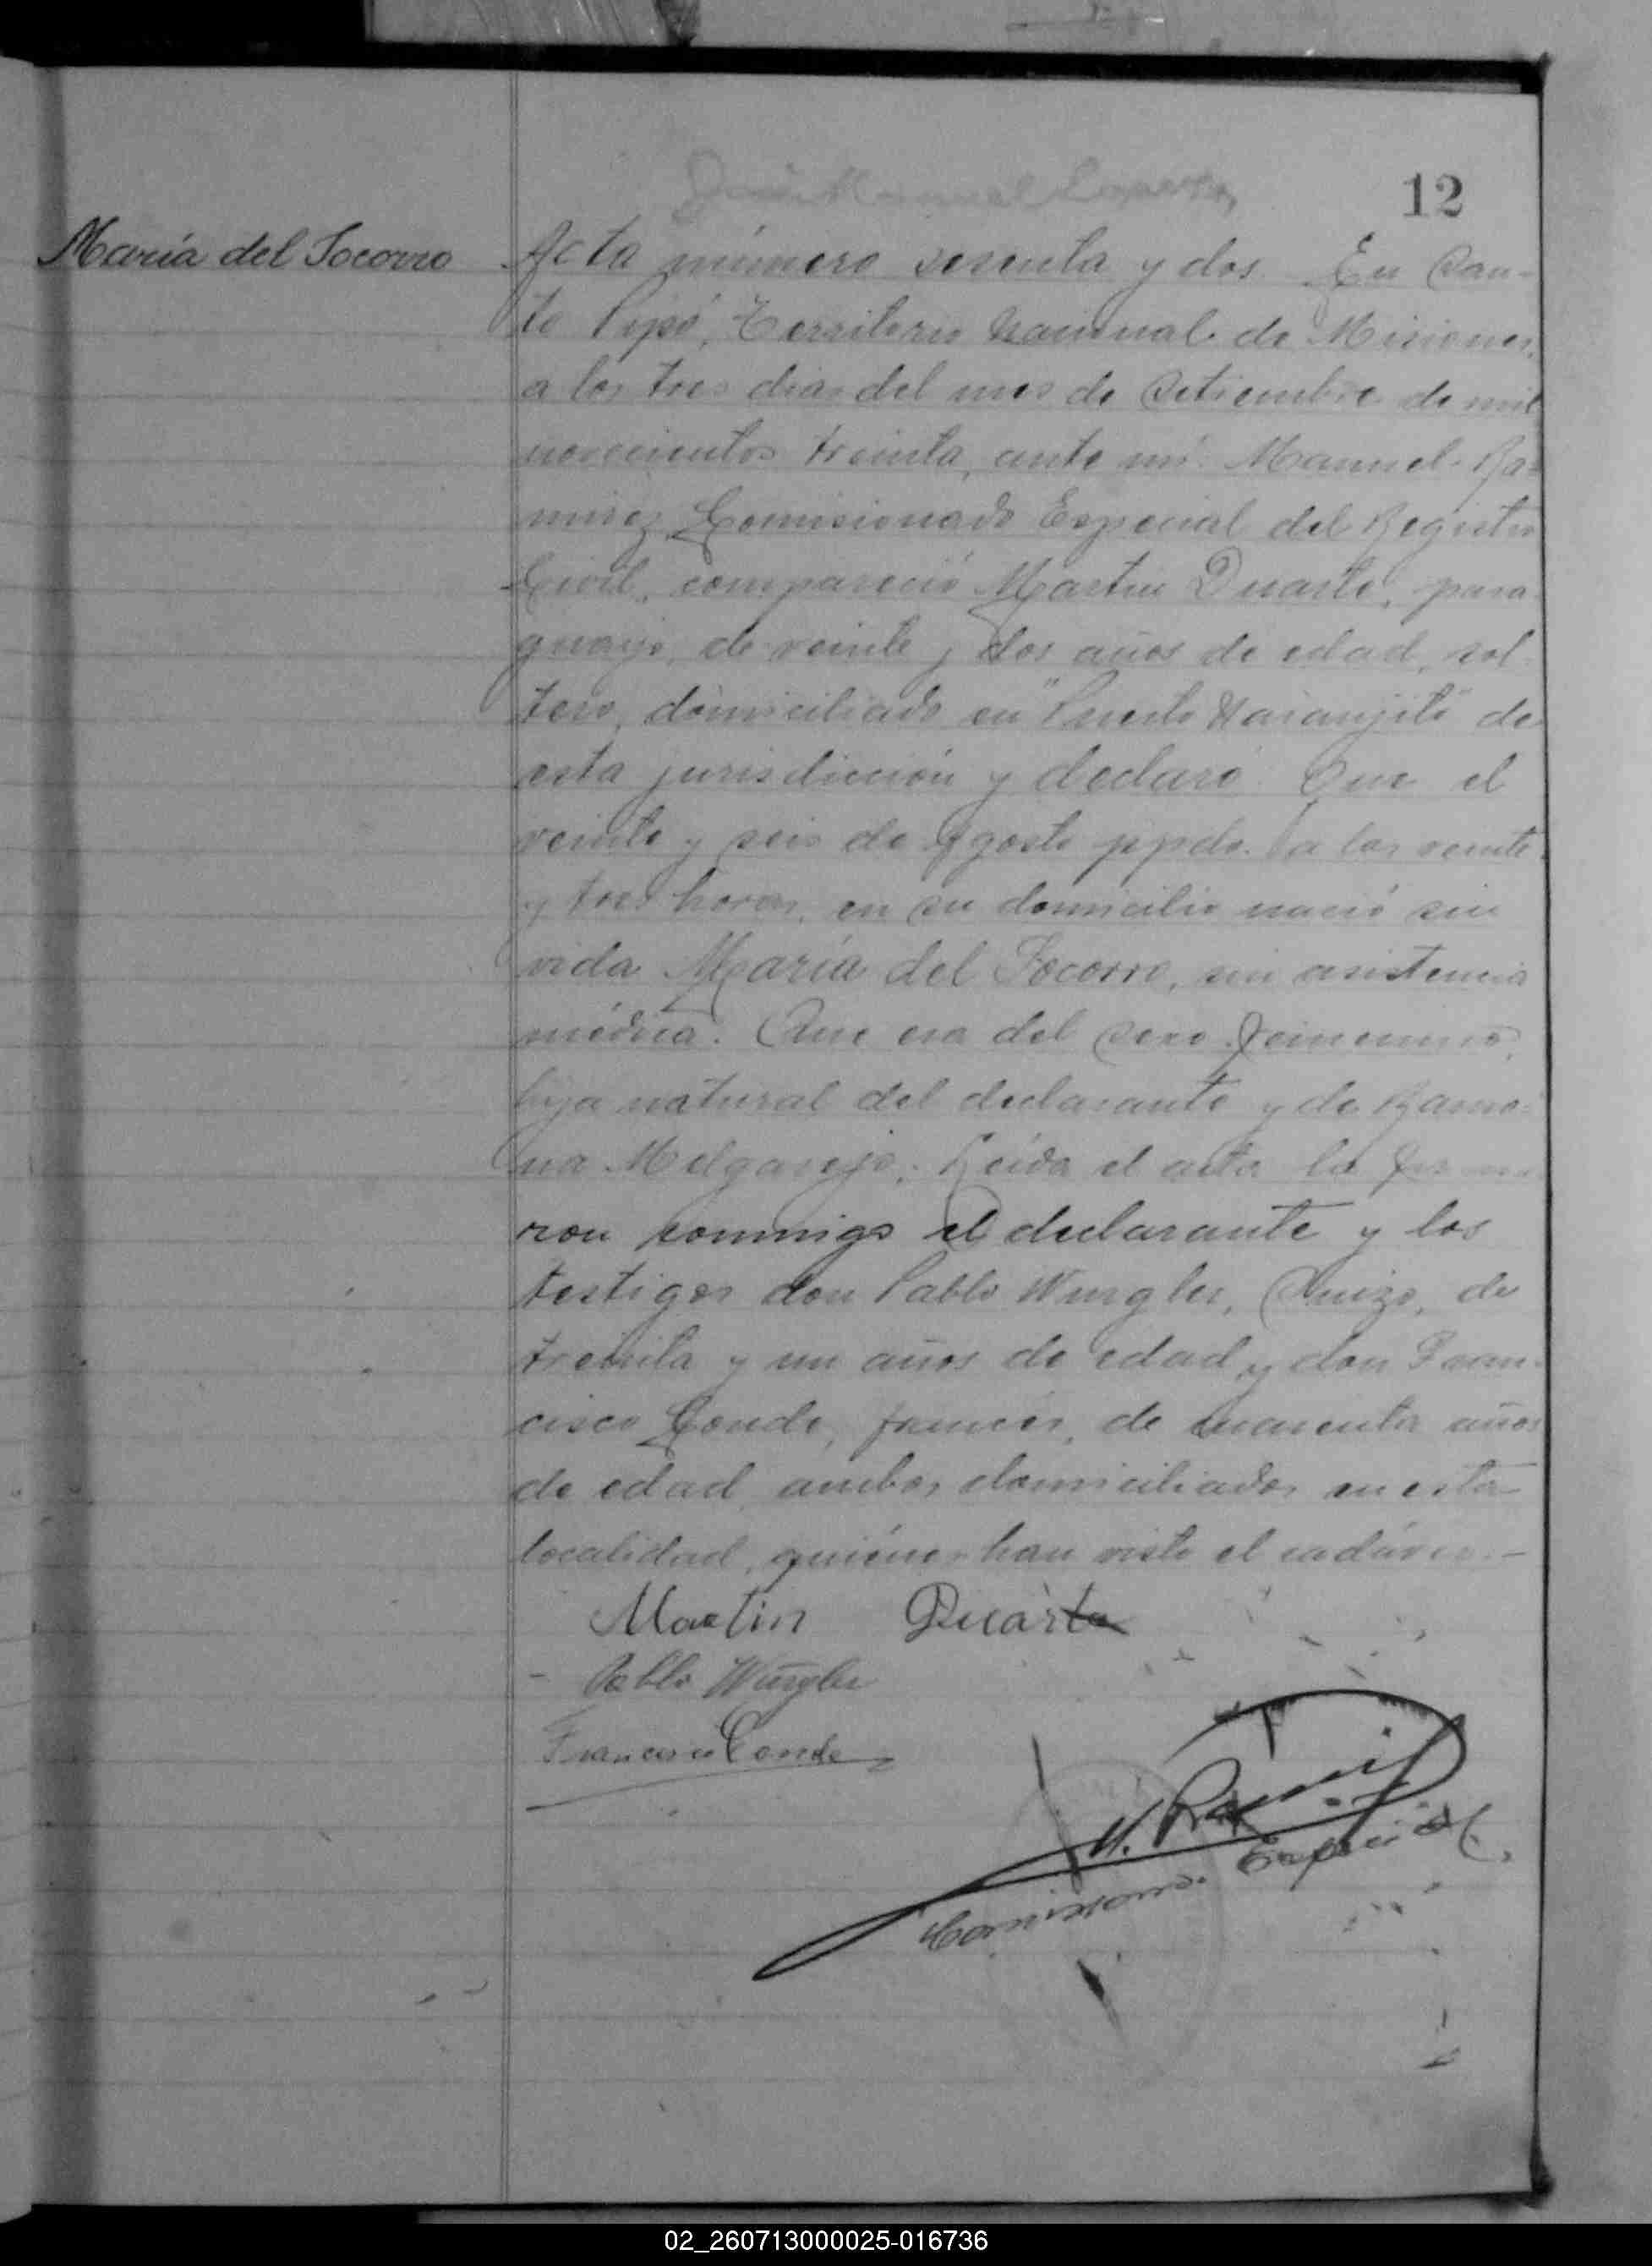 12
María del Socorro
Acta número sesenta y dos. En San-
to Pipó, Territorio Nacional de Misiones,
a los tres dias del mes de Setiembre de mil
novecientos treinta, ante mí: Manuel Ra-
mirez, Comisionado Especial del Registro
Civil, compareció Martin Duarte, para-
guayo, de veinte y dos años de edad, sol-
tero, domiciliado en "Puerto Naranjito" de
esta jurisdicción y declaró: Que el
veinte y seis de Agosto ppdo. a las veinte
y tres horas, en su domicilio nació sin
vida María del Socorro, sin asistencia
médica. Que era del sexo femenino,
hija natural del declarante y de Ramo-
na Melgarejo. Leída el acta la firma-
ron conmigo el declarante y los
testigos don Pablo Wurgler, Suizo, de
treinta y un años de edad y don Fran-
cisco Conde, francés, de cuarenta años
de edad, ambos domiciliados en esta
localidad, quiénes han visto el cadáver.-
Martin Duarte
- Pablo Würgler
Francisco Conde
M. Ramirez
Comisiono. Especial.
02_260713000025-016736